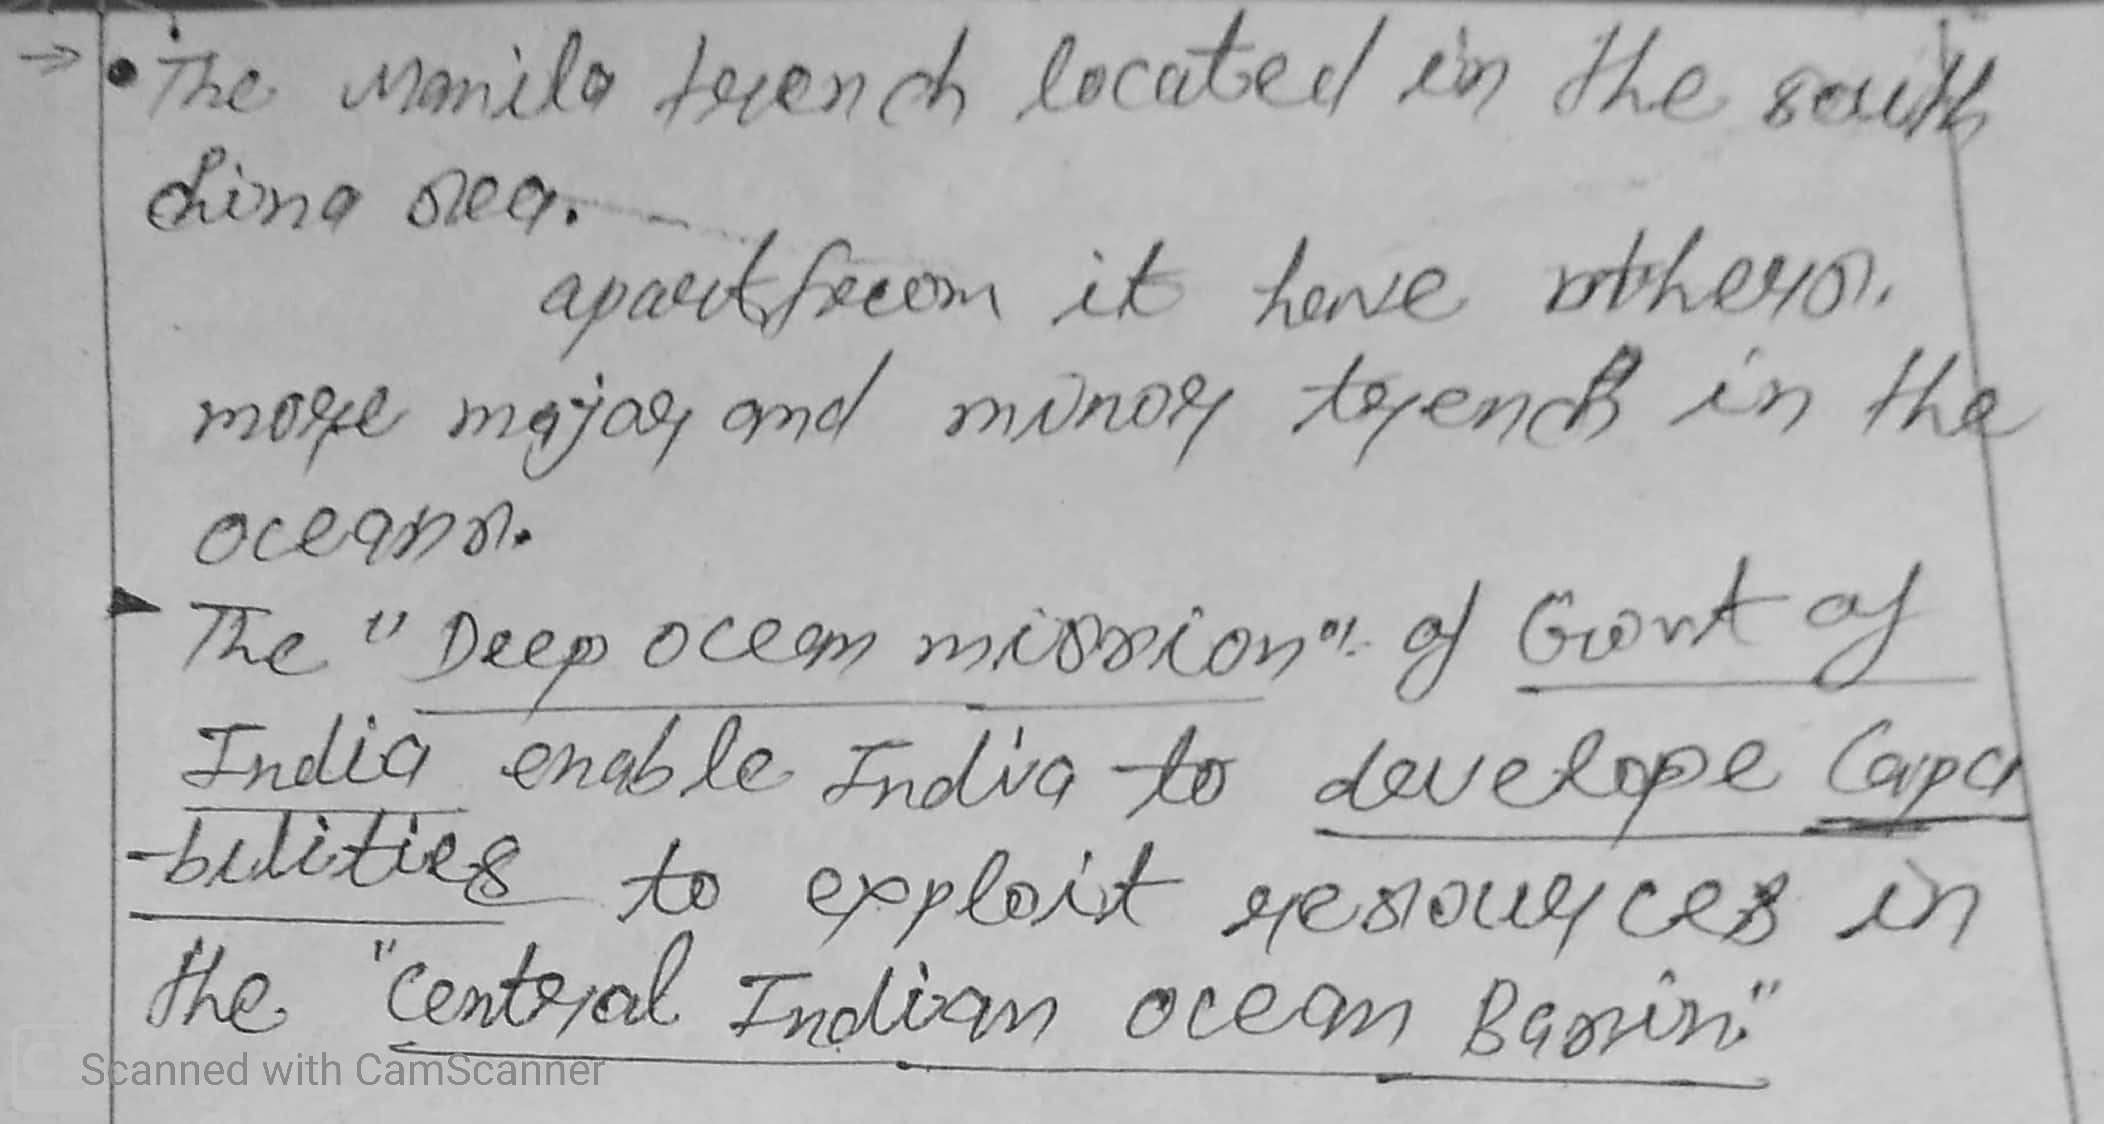 → • The Manila trench located in the south
china sea.
apart from it have others.
more major and minor trench in the
oceans.
▶ The "Deep ocean mission" of Govt of
India enable India to develope Capa
-bilities to exploit resources in
the "Central Indian ocean Basin."
Scanned with CamScanner